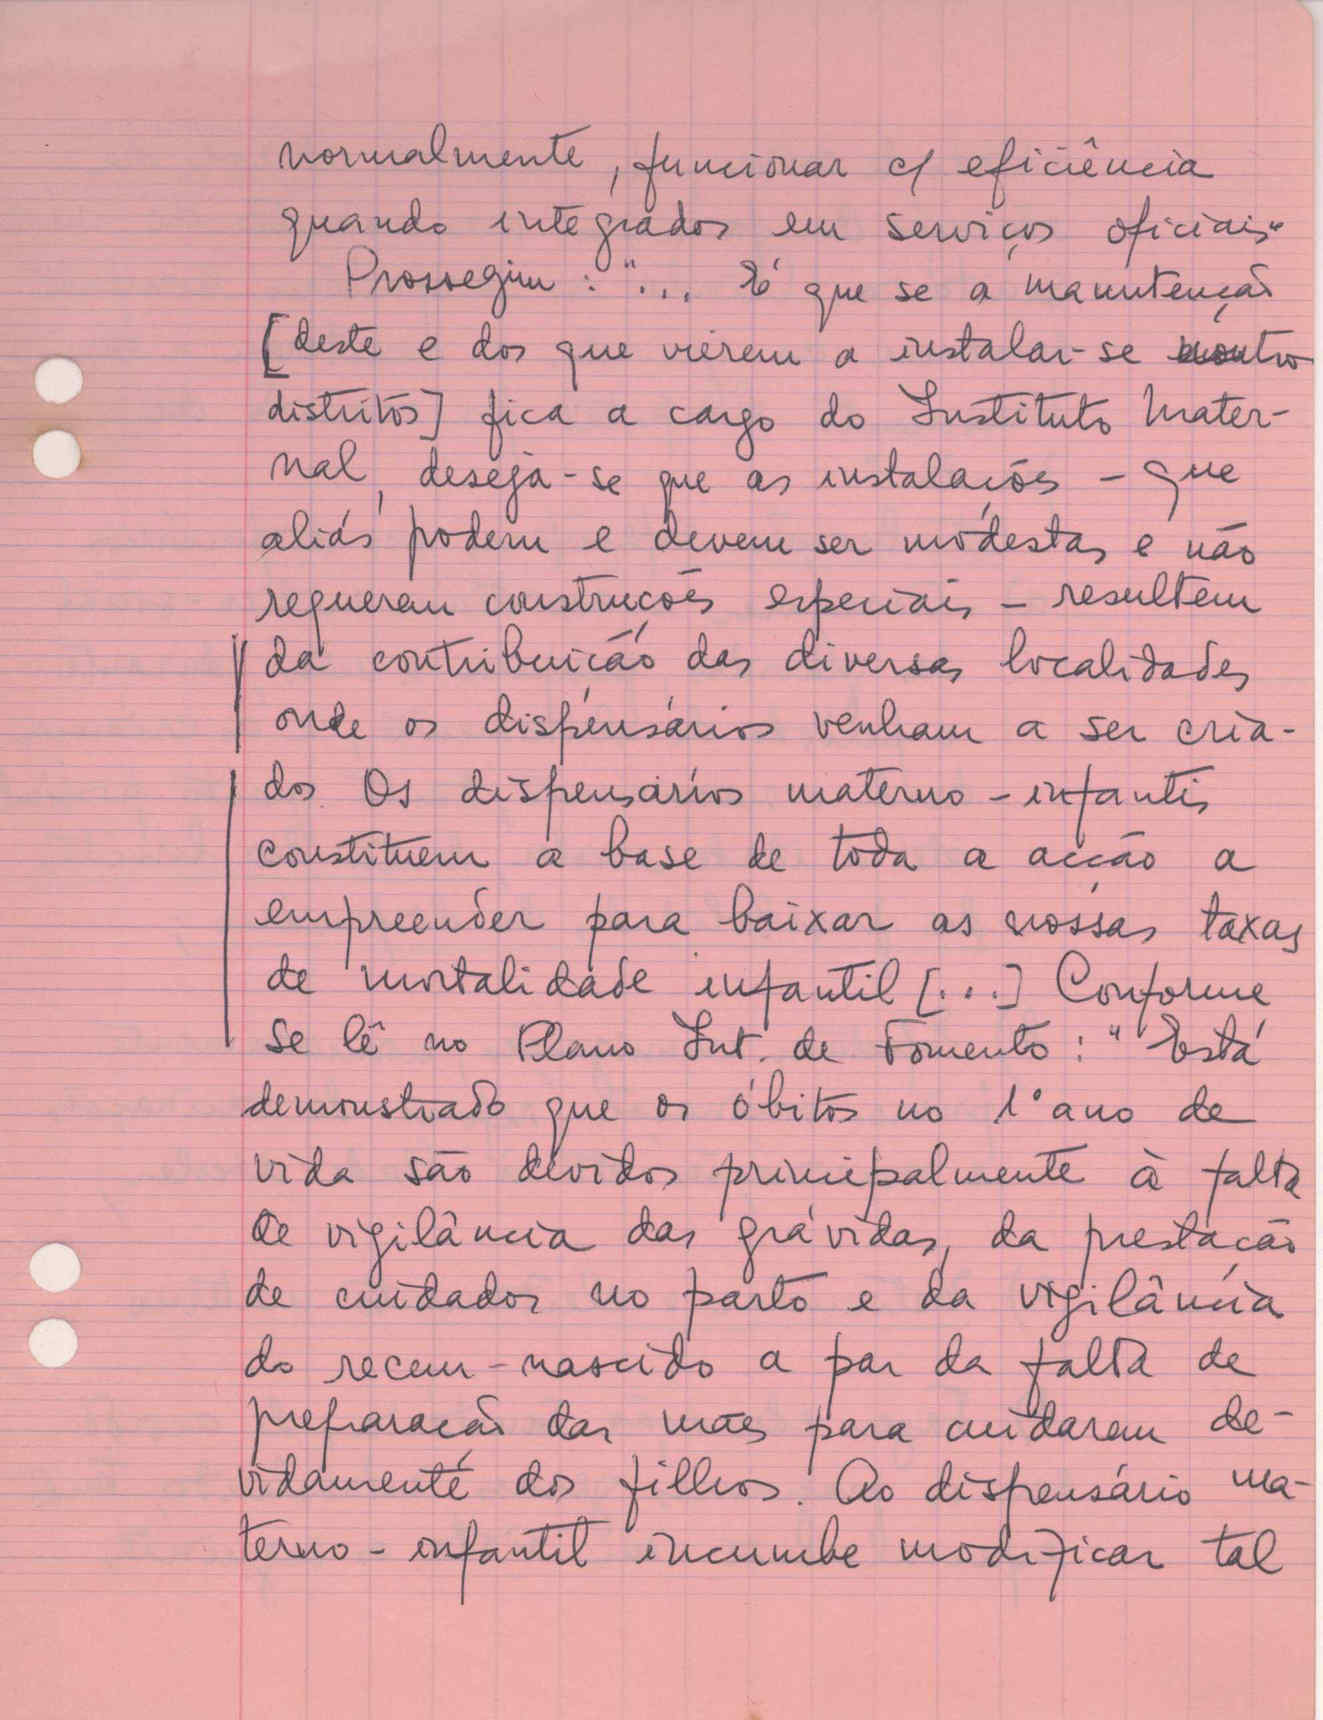 normalmente, funcionar c/ eficiência
quando integrados em serviços oficiais"
Prosseguiu: "... É que se a manutenção
[deste e dos que vierem a instalar-se noutro
distritos] fica a cargo do Instituto Mater-
nal, deseja-se que as instalações - que
aliás podem e devem ser modestas e não
requerem construções especiais - resultem
da contribuição das diversas localidades
onde os dispensários venham a ser cria-
dos. Os dispensários materno-infantis
constituem a base de toda a acção a
empreender para baixar as nossas taxas
de mortalidade infantil [...] Conforme
se lê no Plano Int. de Fomento: "Está
demonstrado que os óbitos no 1º ano de
vida são devidos principalmente à falta
de vigilância das grávidas, da prestação
de cuidados no parto e da vigilância
do recem-nascido a par da falta de
preparação das mães para cuidarem de-
vidamente dos filhos. Ao dispensário ma-
terno-infantil incumbe modificar tal